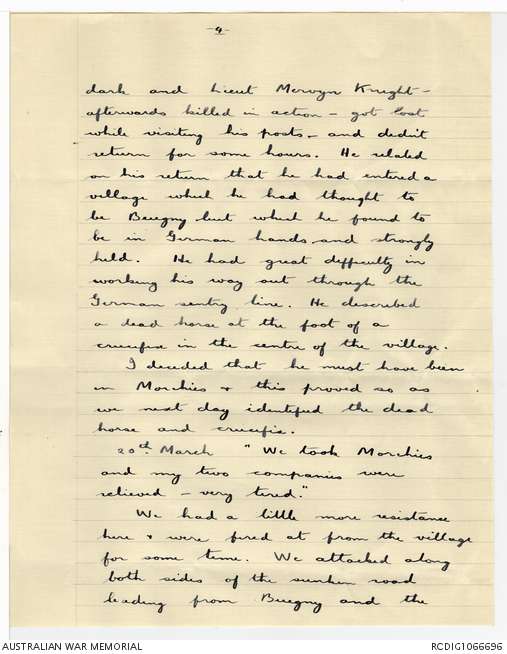 -9-
dark and Lieut Mervyn Knight -
afterwards killed in action - got lost
while visiting his posts - and didn't
return for some hours. He related
on his return that he had entered a
village which he had thought to
be Beugny but which he found to
be in German hands and strongly
held. He had great difficulty in
working his way out through the
German sentry line. He described
a dead horse at the foot of a
crucifix in the centre of the village.
I decided that he must have been
in Morchies & this proved so as
we next day identified the dead
horse and crucifix.
20th March "We took Morchies
and my two companies were
relieved - very tired."
We had a little more resistance
here & were fired at from the village
for some time. We attacked along
both sides of the sunken road
leading from Beugny and the
AUSTRALIAN WAR MEMORIAL
RCDIG1066696